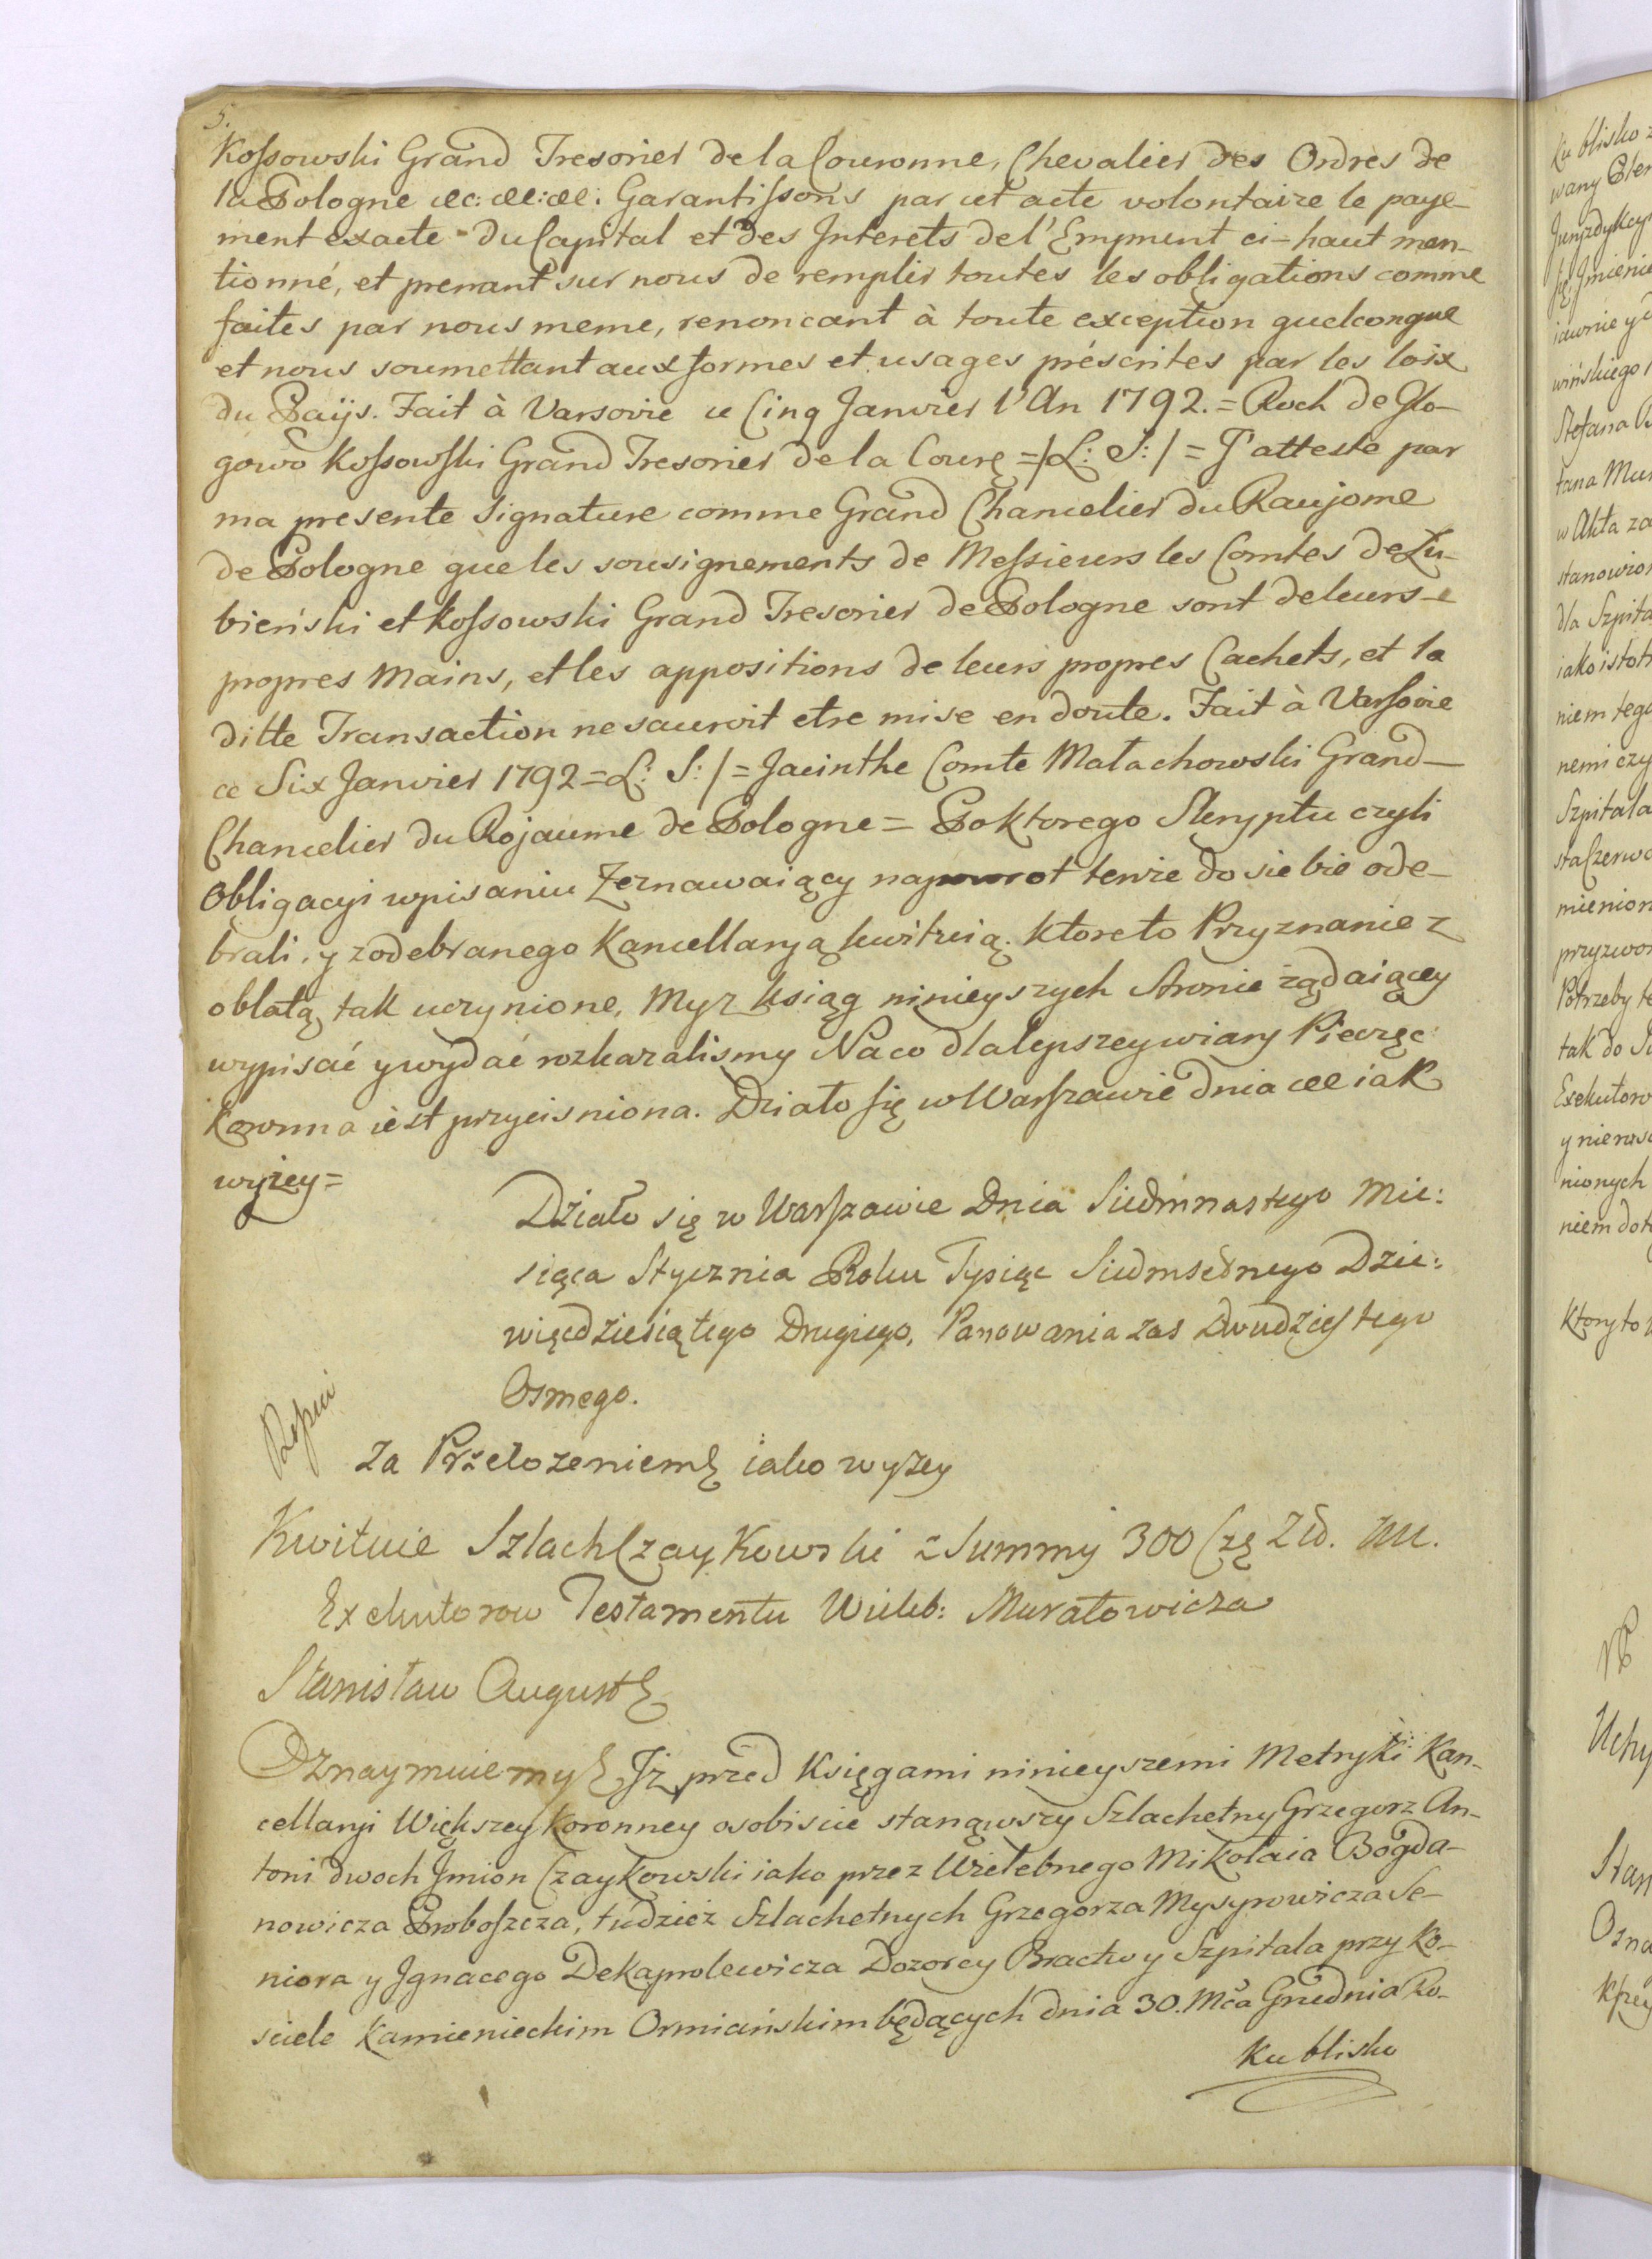 5.
Kossowski Grand Tresorier de la Couronne, Chevalier des Ordres de
la Pologne &c: &c: &c: Garantissons par cet acte volontaire le paye-
ment exacte du Capital et des Interets de l'Emprunt ci-haut men-
tionné, et prenant sur nous de remplir toutes les obligations comme
faites par nous meme, renoncant à toute exception quelconque
et nous soumettant aux formes et usages préscrites par les loix
du Païjs. Fait à Varsovie ce Cinq Janvier l'An 1792. = Roch de Glo-
gowo Kossowski Grand Tresorier de la Cour = /L: S:/ = J'atteste par
ma presente Signature comme Grand Chancelier du Raujome
de Pologne que les sousignements de Messieurs les Comtes de Łu-
bieński et Kossowski Grand Tresorier de Pologne sont de leurs
propres Mains, et les appositions de leurs propres Cachets, et la
ditte Transaction ne sauroit etre mise en doute. Fait à Varsovie
ce Six Janvier 1792 = L: S:/ = Jacinthe Comte Małachowski Grand
Chancelier du Rojaume de Pologne = Po ktorego Skryptu czyli
Obligacyi wpisaniu Zeznawaiący napowrot tenże do siebie ode-
brali, y z odebranego Kancellaryą kwituią. ktore to Przyznanie z
oblatą tak uczynione, My z ksiąg ninieyszych Stronie żądaiącey
wypisać y wydać rozkazalismy Na co dla lepszey wiary Pieczęć
Koronna iest przycisniona. Działo się w Warszawie dnia &c iak
wyżey =
Działo się w Warszawie Dnia Siedmnastego Mie:
siąca Stycznia Roku Tysiąc Siedmsednego Dzie:
więcdziesiątego Drugiego, Panowania zas Dwudziestego
Osmego.
za Przełozeniem iako wyzey
Kwituie Szlach Czaykowski z Summy 300 Czę Złd.
Exekutorow Testamentu Wieleb: Muratowicza
Stanisław August
Oznaymuiemy Iż przed Księgami ninieyszemi Metryki Kan-
cellaryi Większey Koronney osobiscie stanąwszy Szlachetny Grzegorz An-
toni dwoch Jmion Czaykowski iako przez Wielebnego Mikołaia Bogda-
nowicza Proboszcza, tudzież Szlachetnych Grzegorza Mysyrowicza Se-
niora y Jgnacego Dekaprolewicza Dozorcy Bractw y Szpitala przy Ko-
sciele Kamienieckim Ormiańskim będących dnia 30. Mca Grudnia Ro-
ku blisko